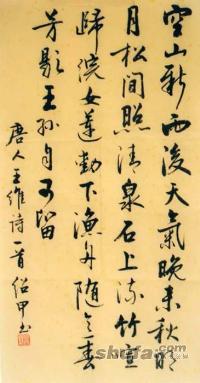 空山新雨後天氣晚来秋明
月松間照清泉石上流竹喧
歸浣女蓮動下漁舟隨意春
芳歇王孫自可留
唐人王維詩一首 紹甲书